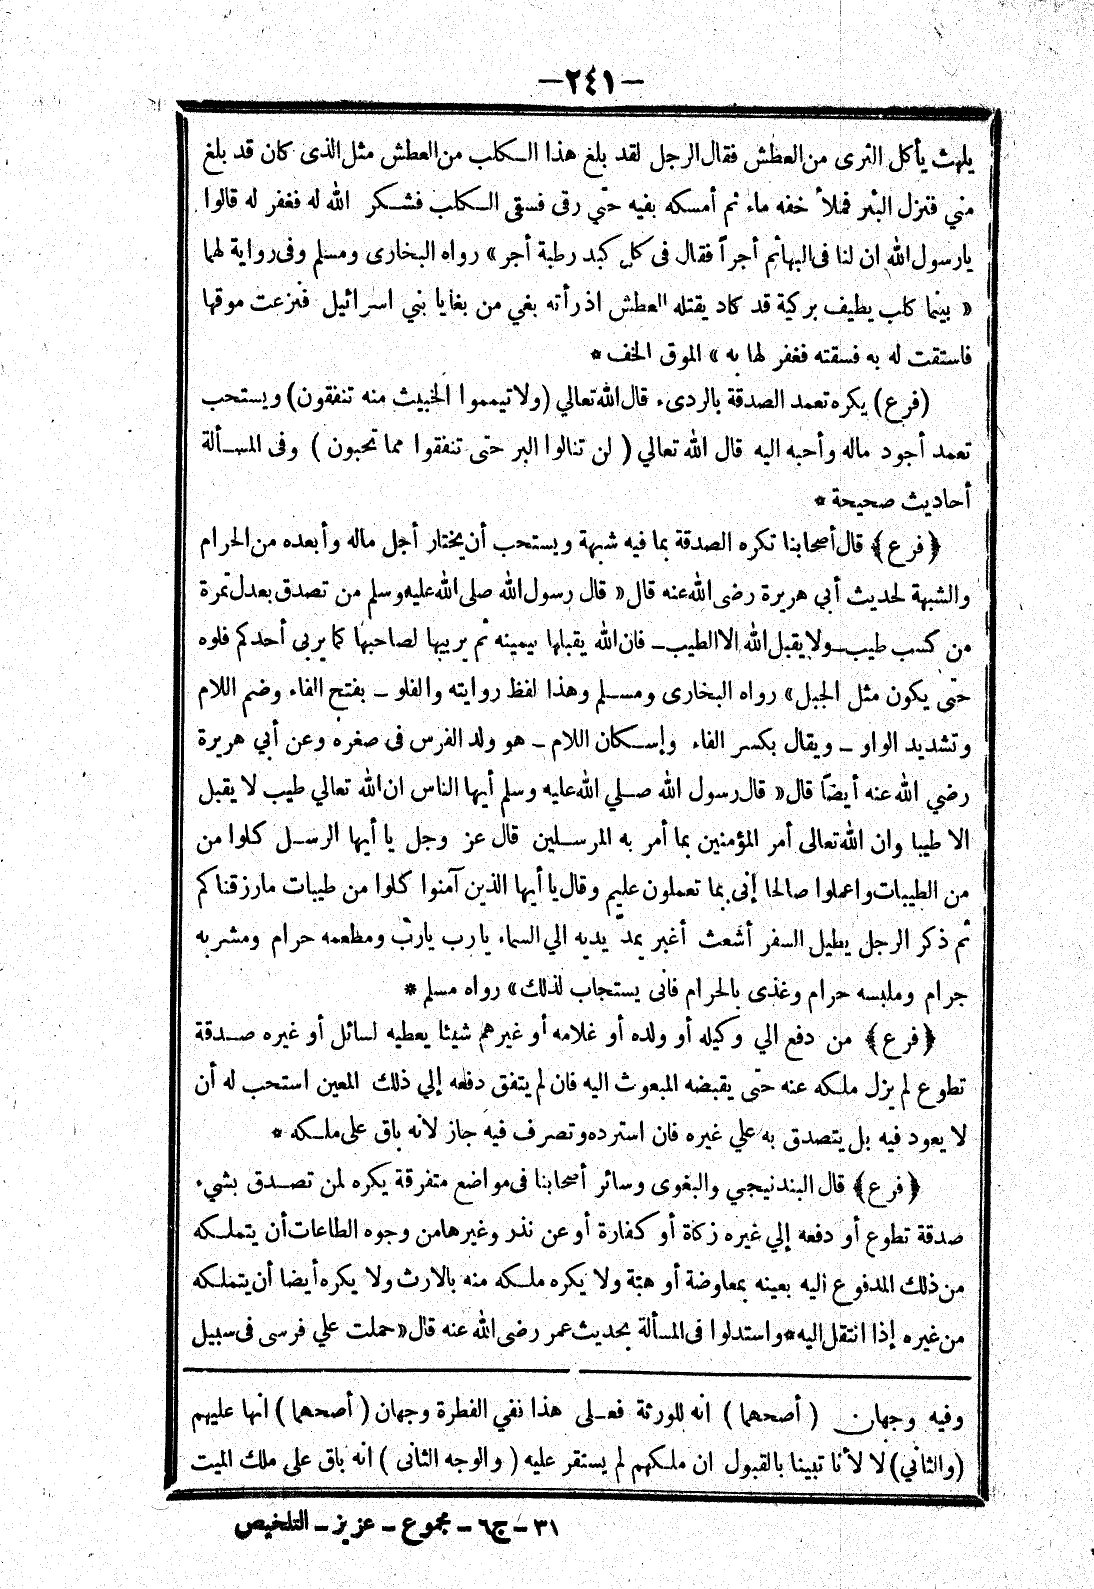 —٢٤١—
يلهث يأكل الثرى من العطش فقال الرجل لقد بلغ هذا الكلب من العطش مثل الذى كان قد بلغ
مني فنزل البئر فملأ خفه ماء ثم أمسكه بفيه حتي رقى فسقى الكلب فشكر الله له فغفر له قالوا
يارسول الله ان لنا فى البهائم أجراً فقال فى كل كبد رطبة أجر» رواه البخارى ومسلم وفى رواية لهما
« بينما كلب يطيف بركية قد كاد يقتله العطش اذ رأته بغي من بغايا بني اسرائيل فنزعت موقها
فاستقت له به فسقته فغفر لها به » الموق الخف *
(فرع) يكره تعمد الصدقة بالردىء قال الله تعالي (ولا تيمموا الخبيث منه تنفقون) ويستحب
تعمد أجود ماله وأحبه اليه قال الله تعالي ( لن تنالوا البر حتى تنفقوا مما تحبون ) وفى المسألة
أحاديث صحيحة *
﴿فرع﴾ قال أصحابنا تكره الصدقة بما فيه شبهة ويستحب أن يختار أجل ماله وأبعده من الحرام
والشبهة لحديث أبي هريرة رضى الله عنه قال « قال رسول الله صلى الله عليه وسلم من تصدق بعدل تمرة
من كسب طيب ــ ولا يقبل الله الا الطيب ــ فان الله يقبلها بيمينه ثم يربيها لصاحبها كما يربى أحدكم فلوه
حتى يكون مثل الجبل» رواه البخارى ومسلم وهذا لفظ روايته والفلو ــ بفتح الفاء وضم اللام
وتشديد الواو ــ ويقال بكسر الفاء وإسكان اللام ــ هو ولد الفرس فى صغره وعن أبي هريرة
رضي الله عنه أيضاً قال « قال رسول الله صلي الله عليه وسلم أيها الناس ان الله تعالي طيب لا يقبل
الا طيبا وان الله تعالى أمر المؤمنين بما أمر به المرسلين قال عز وجل يا أيها الرسل كلوا من
من الطيبات واعملوا صالحا إنى بما تعملون عليم وقال يا أيها الذين آمنوا كلوا من طيبات مارزقناكم
ثم ذكر الرجل يطيل السفر أشعث أغبر يمدّ يديه الي السماء يارب يارب ومطعمه حرام ومشربه
حرام وملبسه حرام وغذى بالحرام فانى يستجاب لذلك» رواه مسلم *
﴿فرع﴾ من دفع الي وكيله أو ولده أو غلامه أو غيرهم شيئا يعطيه لسائل أو غيره صدقة
تطوع لم يزل ملكه عنه حتى يقبضه المبعوث اليه فان لم يتفق دفعه إلي ذلك المعين استحب له أن
لا يعود فيه بل يتصدق به علي غيره فان استرده وتصرف فيه جاز لأنه باق على ملكه *
﴿فرع﴾ قال البندنيجي والبغوى وسائر أصحابنا فى مواضع متفرقة يكره لمن تصدق بشيء
صدقة تطوع أو دفعه إلي غيره زكاة أو كفارة أو عن نذر وغيرها من وجوه الطاعات أن يتملكه
من ذلك المدفوع اليه بعينه بمعاوضة أو هبة ولا يكره ملكه منه بالارث ولا يكره أيضا أن يتملكه
من غيره إذا انتقل اليه * واستدلوا فى المسألة بحديث عمر رضى الله عنه قال « حملت علي فرسى فى سبيل
وفيه وجهان ( أصحهما ) انه للورثة فعلى هذا نفي الفطرة وجهان ( أصحهما ) انها عليهم
(والثاني) لا لأنا تبينا بالقبول ان ملكهم لم يستقر عليه ( والوجه الثانى ) انه باق على ملك الميت
٣١ – ج٦ – مجموع – عزيز – التلخيص